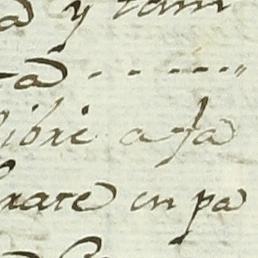 a y tam
ta - - - - - - "
libre a fa
rare en pa